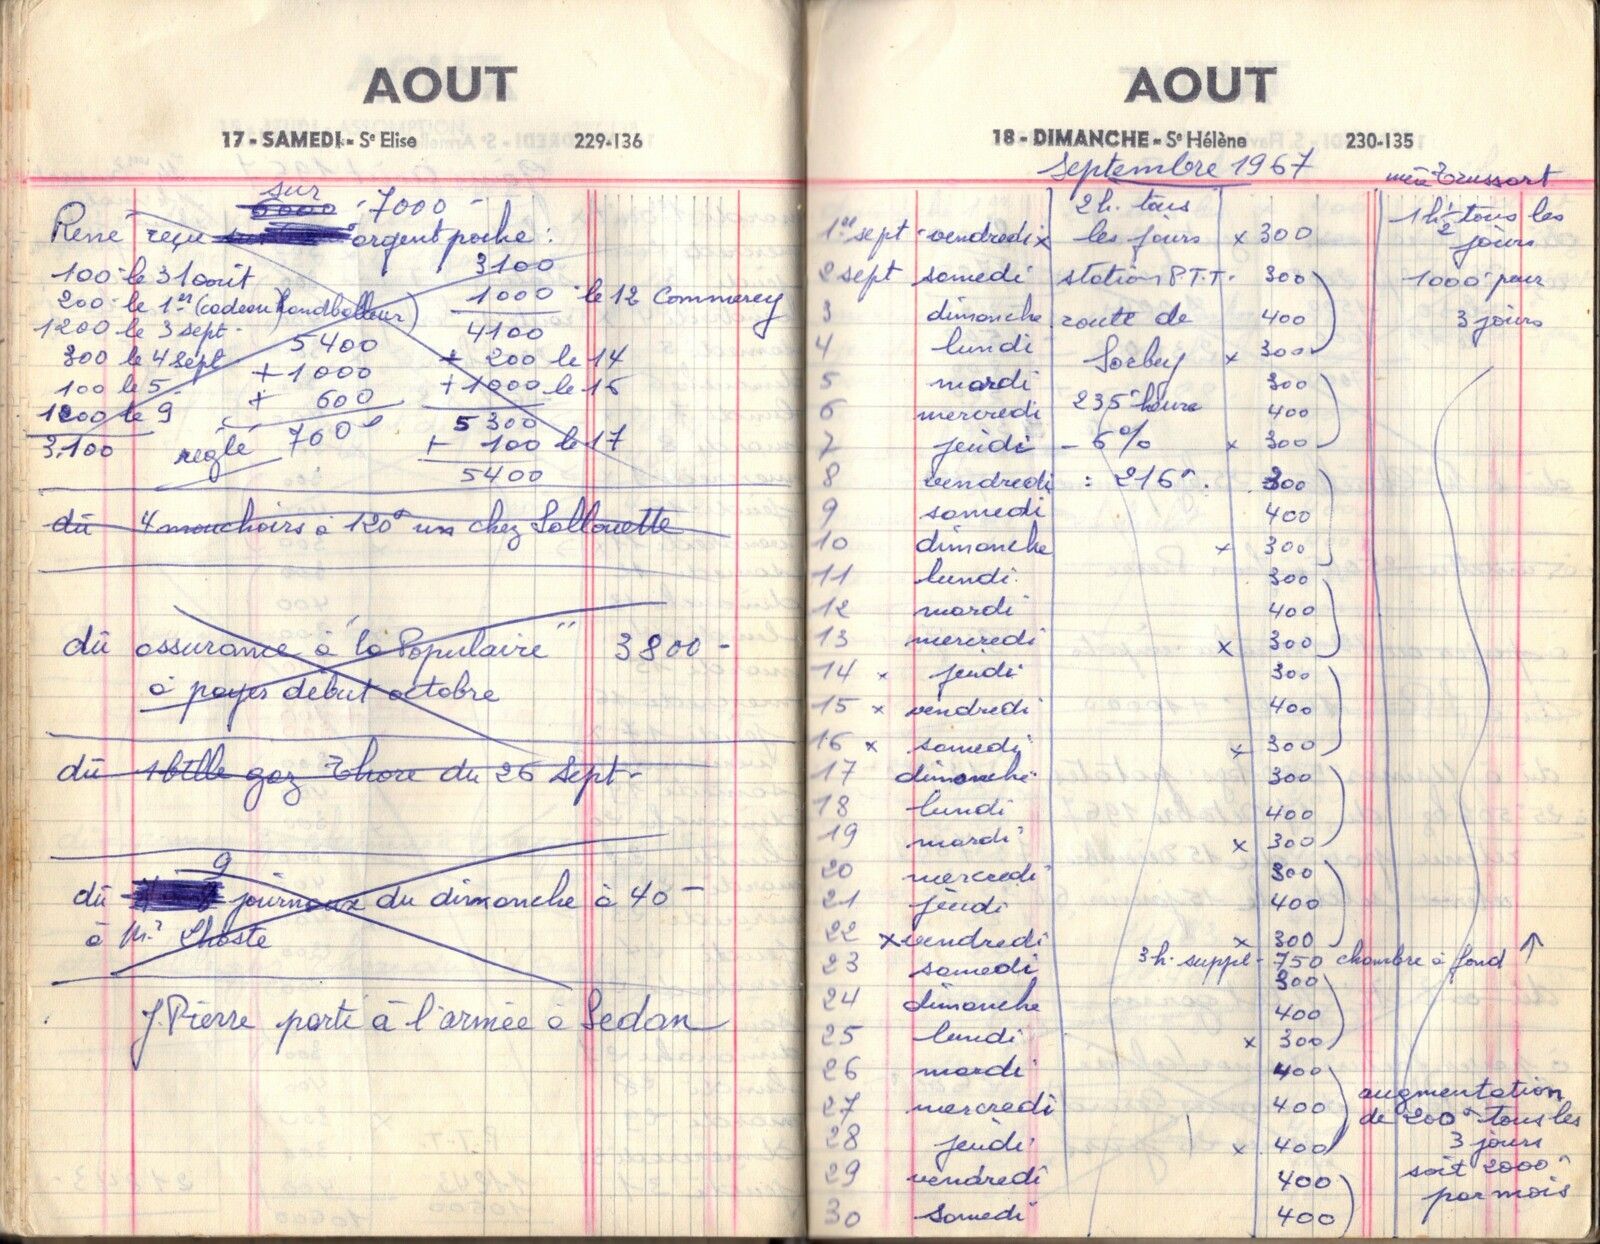 AOUT
17 - SAMEDI - Sᵉ Elise 229-136
sur
6000 - 7000 -
René reçu argent poche :
100 - le 31 août
200 - le 1er (cadeau handballeur)
1200 le 3 sept -
300 le 4 sept
100 le 5
1200 le 9
3,100
5400
+ 1000
+ 600
réglé
3100
1000 - le 12 Commercy
4100
+ 200 le 14
+ 1000 le 16
5300
+ 100 le 17
5400
dû 4 mouchoirs à 120 un chez Sollouette
dû assurance à "la Populaire" 3800 -
à payer début octobre
dû 1 btlle gaz Thore du 26 Sept -
9
dû journaux du dimanche à 40 -
à Mr Lhoste
J. Pierre parti à l'armée à Sedan
AOUT
18 - DIMANCHE - Sᵉ Hélène 230-135
Septembre 1967
mme Trussart
2h. tous 1h 1/2 tous les
1er sept - vendredi x les jours x 300 jours
2 sept samedi station P.T.T. 300 1000 - pour
3 dimanche route de 400 3 jours
4 lundi Sorbey x 300
5 mardi 300
6 mercredi 235 heure 400
7 jeudi - 6% x 300
8 vendredi : 216 . 300
9 samedi 400
10 dimanche x 300
11 lundi 300
12 mardi 400
13 mercredi x 300
14 x jeudi 300
15 x vendredi 400
16 x samedi x 300
17 dimanche 300
18 lundi 400
19 mardi x 300
20 mercredi 300
21 jeudi 400
22 x vendredi x 300
3h. suppl - 750 chambre à fond ↑
23 samedi 300
24 dimanche 400
25 lundi x 300
26 mardi 400
27 mercredi 400
28 jeudi x 400
29 vendredi 400
30 samedi 400
augmentation
de 200 - tous les
3 jours
soit 2000 -
par mois